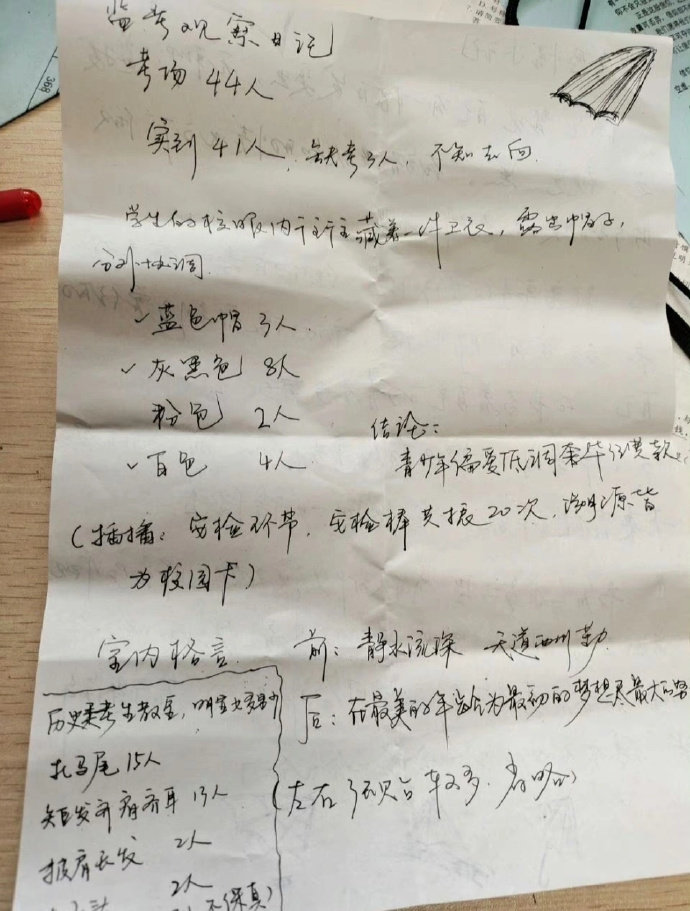 监考观察日记
考场 44人
实到 41人，缺考3人，不知去向.
学生的校服内 藏着一件卫衣，露出帽子，
分外协调
✓蓝色帽 3人.
✓灰黑色 8人
粉色 2人
✓白色 4人
结论：
青少年偏爱低调奢华 款。
(插播：安检环节，安检棒共振20次，源皆
为校园卡)
室内格言
前：静水流深 天道酬勤.
后：在最美的年龄为最初的梦想尽最大的努
(左右 较多.省略)
历史类考生教室，明显女多男少
扎马尾 15人
短发齐肩齐耳 13人
披肩长发 2人
2人
不保真)